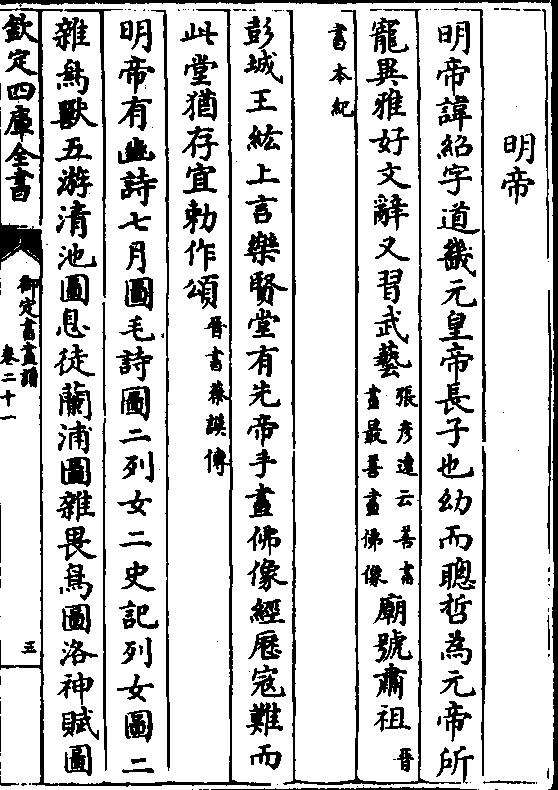 明帝
明帝諱紹字道畿元皇帝長子也幼而聰哲為元帝所
寵異雅好文辭又習武藝張彦逺云善書畫最善畫佛像廟號肅祖晉
書本紀
彭城王紘上言樂賢堂有先帝手畫佛像經歴寇難而
此堂猶存宜勅作頌晉書蔡謨傳
明帝有豳詩七月圖毛詩圖二列女二史記列女圖二
雜鳥獸五游清池圖息徒蘭浦圖雜畏鳥圖洛神賦圖
欽定四庫全書
御定書畫譜
卷二十一
五